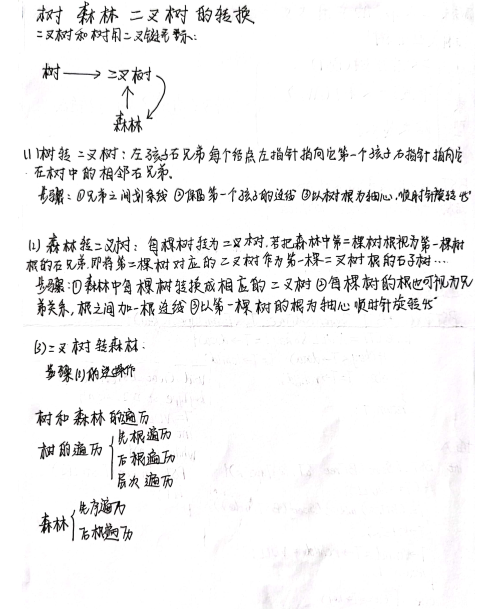 树 森林 二叉树的转换
二叉树和树用二叉链表
树 → 二叉树
森林
(1) 树转二叉树:左孩子右兄弟 每个结点左指针指向它第一个孩子 右指针指向它
在树中的相邻右兄弟。
步骤:①兄弟之间划条线 ②保留第一个孩子的连线 ③以树根为轴心,顺时针旋转45°
(2) 森林转二叉树:每棵树转为二叉树,若把森林中第二棵树根视为第一棵树
根的右兄弟,即将第二棵树对应的二叉树作为第一棵二叉树根的右子树…
步骤:①森林中每棵树转换成相应的二叉树 ②每棵树的根也可视为兄
弟关系,根之间加一根连线 ③以第一棵树的根为轴心顺时针旋转45°
(3) 二叉树转森林:
步骤(1)的逆操作
树和森林的遍历
树的遍历 { 先根遍历
后根遍历
层次遍历
森林 { 先序遍历
后根遍历